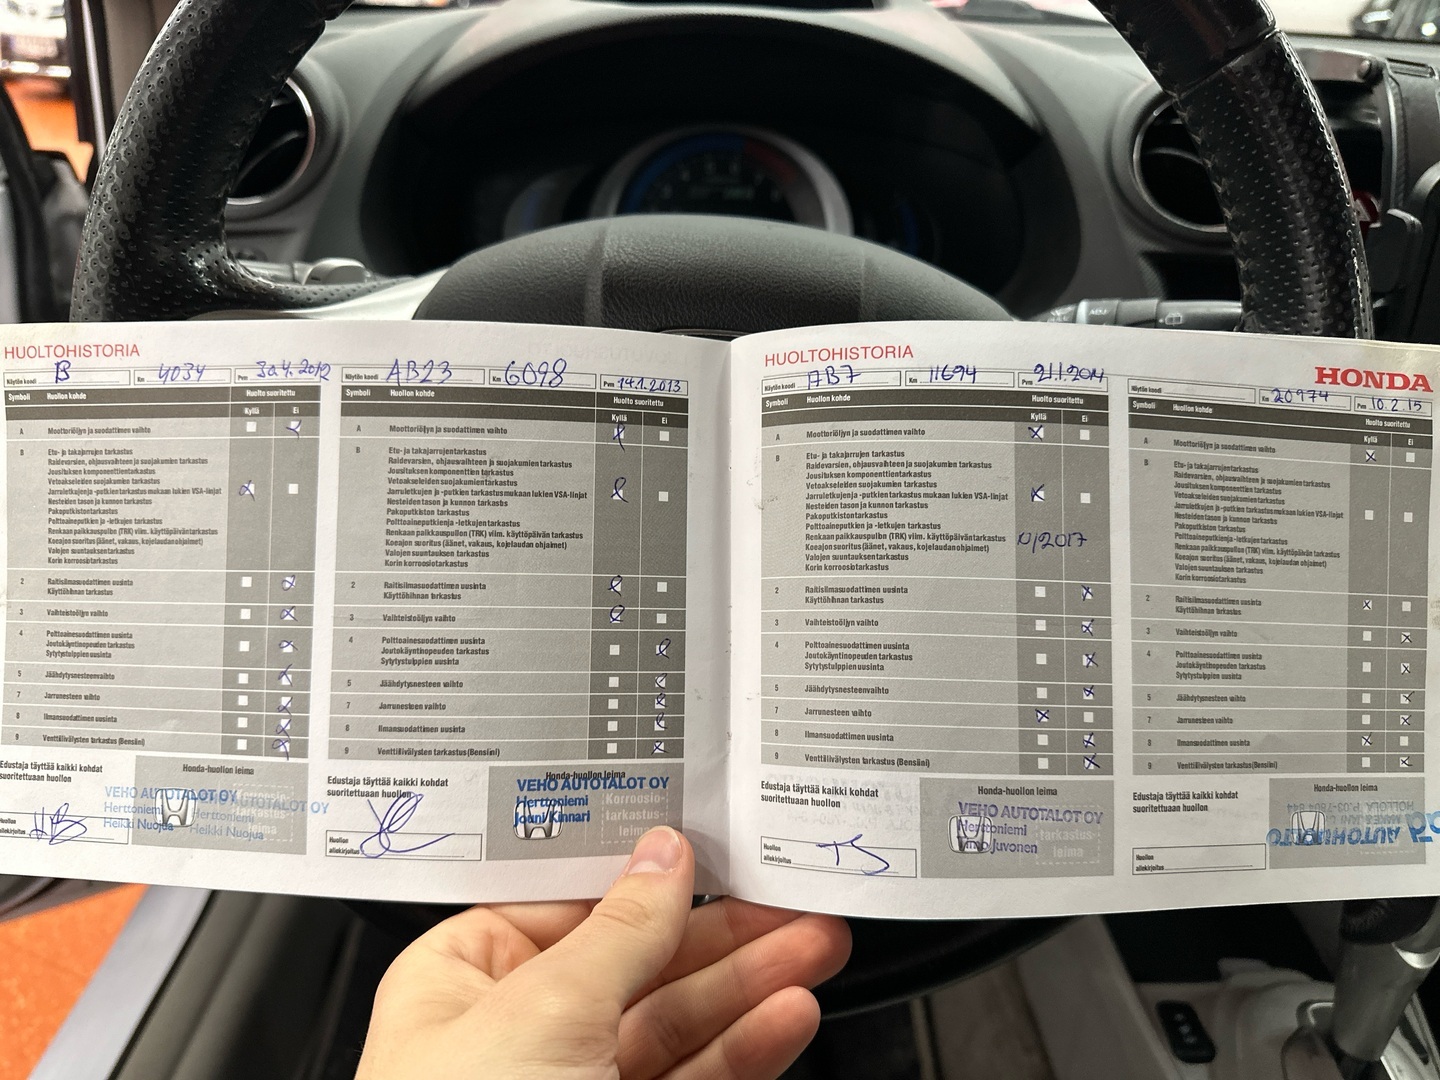 HUOLTOHISTORIA
Näytön koodi B Km 4034 Pvm 30.4.2012
Symboli Huollon kohde Huolto suoritettu
Kyllä Ei
A Moottoriöljyn ja suodattimen vaihto
B Etu- ja takajarrujen tarkastus
Raidevarsien, ohjausvaihteen ja suojakumien tarkastus
Jousituksen komponenttien tarkastus
Vetoakseleiden suojakumien tarkastus
Jarruletkujen ja -putkien tarkastus mukaan lukien VSA-linjat
Nesteiden tason ja kunnon tarkastus
Pakoputkiston tarkastus
Polttoaineputkien ja -letkujen tarkastus
Renkaan paikkauspullon (TRK) viim. käyttöpäivän tarkastus
Koeajon suoritus (äänet, vakaus, kojelaudan ohjaimet)
Valojen suuntauksen tarkastus
Korin korroosiotarkastus
2 Raitisilmasuodattimen uusinta
Käyttöhihnan tarkastus
3 Vaihteistoöljyn vaihto
4 Polttoainesuodattimen uusinta
Joutokäyntinopeuden tarkastus
Sytytystulppien uusinta
5 Jäähdytysnesteen vaihto
7 Jarrunesteen vaihto
8 Ilmansuodattimen uusinta
9 Venttiilivälysten tarkastus (Bensiini)
Edustaja täyttää kaikki kohdat
suoritettuaan huollon
Honda-huollon leima
VEHO AUTOTALOT OY
Herttoniemi
Heikki Nuojua
AUTOTALOT OY
Herttoniemi
Heikki Nuojua
Huollon
allekirjoitus
Näytön koodi AB23 Km 6098 Pvm 14.1.2013
Symboli Huollon kohde Huolto suoritettu
Kyllä Ei
A Moottoriöljyn ja suodattimen vaihto
B Etu- ja takajarrujen tarkastus
Raidevarsien, ohjausvaihteen ja suojakumien tarkastus
Jousituksen komponenttien tarkastus
Vetoakseleiden suojakumien tarkastus
Jarruletkujen ja -putkien tarkastus mukaan lukien VSA-linjat
Nesteiden tason ja kunnon tarkastus
Pakoputkiston tarkastus
Polttoaineputkien ja -letkujen tarkastus
Renkaan paikkauspullon (TRK) viim. käyttöpäivän tarkastus
Koeajon suoritus (äänet, vakaus, kojelaudan ohjaimet)
Valojen suuntauksen tarkastus
Korin korroosiotarkastus
2 Raitisilmasuodattimen uusinta
Käyttöhihnan tarkastus
3 Vaihteistoöljyn vaihto
4 Polttoainesuodattimen uusinta
Joutokäyntinopeuden tarkastus
Sytytystulppien uusinta
5 Jäähdytysnesteen vaihto
7 Jarrunesteen vaihto
8 Ilmansuodattimen uusinta
9 Venttiilivälysten tarkastus (Bensiini)
Edustaja täyttää kaikki kohdat
suoritettuaan huollon
Honda-huollon leima
VEHO AUTOTALOT OY
Herttoniemi
Jouni Kinnari
Korroosio-
tarkastus-
leima
Huollon
allekirjoitus
HUOLTOHISTORIA
Näytön koodi AB7 Km 11694 Pvm 21.1.2014
Symboli Huollon kohde Huolto suoritettu
Kyllä Ei
A Moottoriöljyn ja suodattimen vaihto
B Etu- ja takajarrujen tarkastus
Raidevarsien, ohjausvaihteen ja suojakumien tarkastus
Jousituksen komponenttien tarkastus
Vetoakseleiden suojakumien tarkastus
Jarruletkujen ja -putkien tarkastus mukaan lukien VSA-linjat
Nesteiden tason ja kunnon tarkastus
Pakoputkiston tarkastus
Polttoaineputkien ja -letkujen tarkastus
Renkaan paikkauspullon (TRK) viim. käyttöpäivän tarkastus /2017
Koeajon suoritus (äänet, vakaus, kojelaudan ohjaimet)
Valojen suuntauksen tarkastus
Korin korroosiotarkastus
2 Raitisilmasuodattimen uusinta
Käyttöhihnan tarkastus
3 Vaihteistoöljyn vaihto
4 Polttoainesuodattimen uusinta
Joutokäyntinopeuden tarkastus
Sytytystulppien uusinta
5 Jäähdytysnesteen vaihto
7 Jarrunesteen vaihto
8 Ilmansuodattimen uusinta
9 Venttiilivälysten tarkastus (Bensiini)
Edustaja täyttää kaikki kohdat
suoritettuaan huollon
Honda-huollon leima
VEHO AUTOTALOT OY
Herttoniemi
Timo Juvonen
tarkastus-
leima
Huollon
allekirjoitus TJ
HONDA
Näytön koodi Km 20974 Pvm 10.2.15
Symboli Huollon kohde Huolto suoritettu
Kyllä Ei
A Moottoriöljyn ja suodattimen vaihto
B Etu- ja takajarrujen tarkastus
Raidevarsien, ohjausvaihteen ja suojakumien tarkastus
Jousituksen komponenttien tarkastus
Vetoakseleiden suojakumien tarkastus
Jarruletkujen ja -putkien tarkastus mukaan lukien VSA-linjat
Nesteiden tason ja kunnon tarkastus
Pakoputkiston tarkastus
Polttoaineputkien ja -letkujen tarkastus
Renkaan paikkauspullon (TRK) viim. käyttöpäivän tarkastus
Koeajon suoritus (äänet, vakaus, kojelaudan ohjaimet)
Valojen suuntauksen tarkastus
Korin korroosiotarkastus
2 Raitisilmasuodattimen uusinta
Käyttöhihnan tarkastus
3 Vaihteistoöljyn vaihto
4 Polttoainesuodattimen uusinta
Joutokäyntinopeuden tarkastus
Sytytystulppien uusinta
5 Jäähdytysnesteen vaihto
7 Jarrunesteen vaihto
8 Ilmansuodattimen uusinta
9 Venttiilivälysten tarkastus (Bensiini)
Edustaja täyttää kaikki kohdat
suoritettuaan huollon
Honda-huollon leima
AUTOHUOLTO
HOLLOLA
Huollon
allekirjoitus